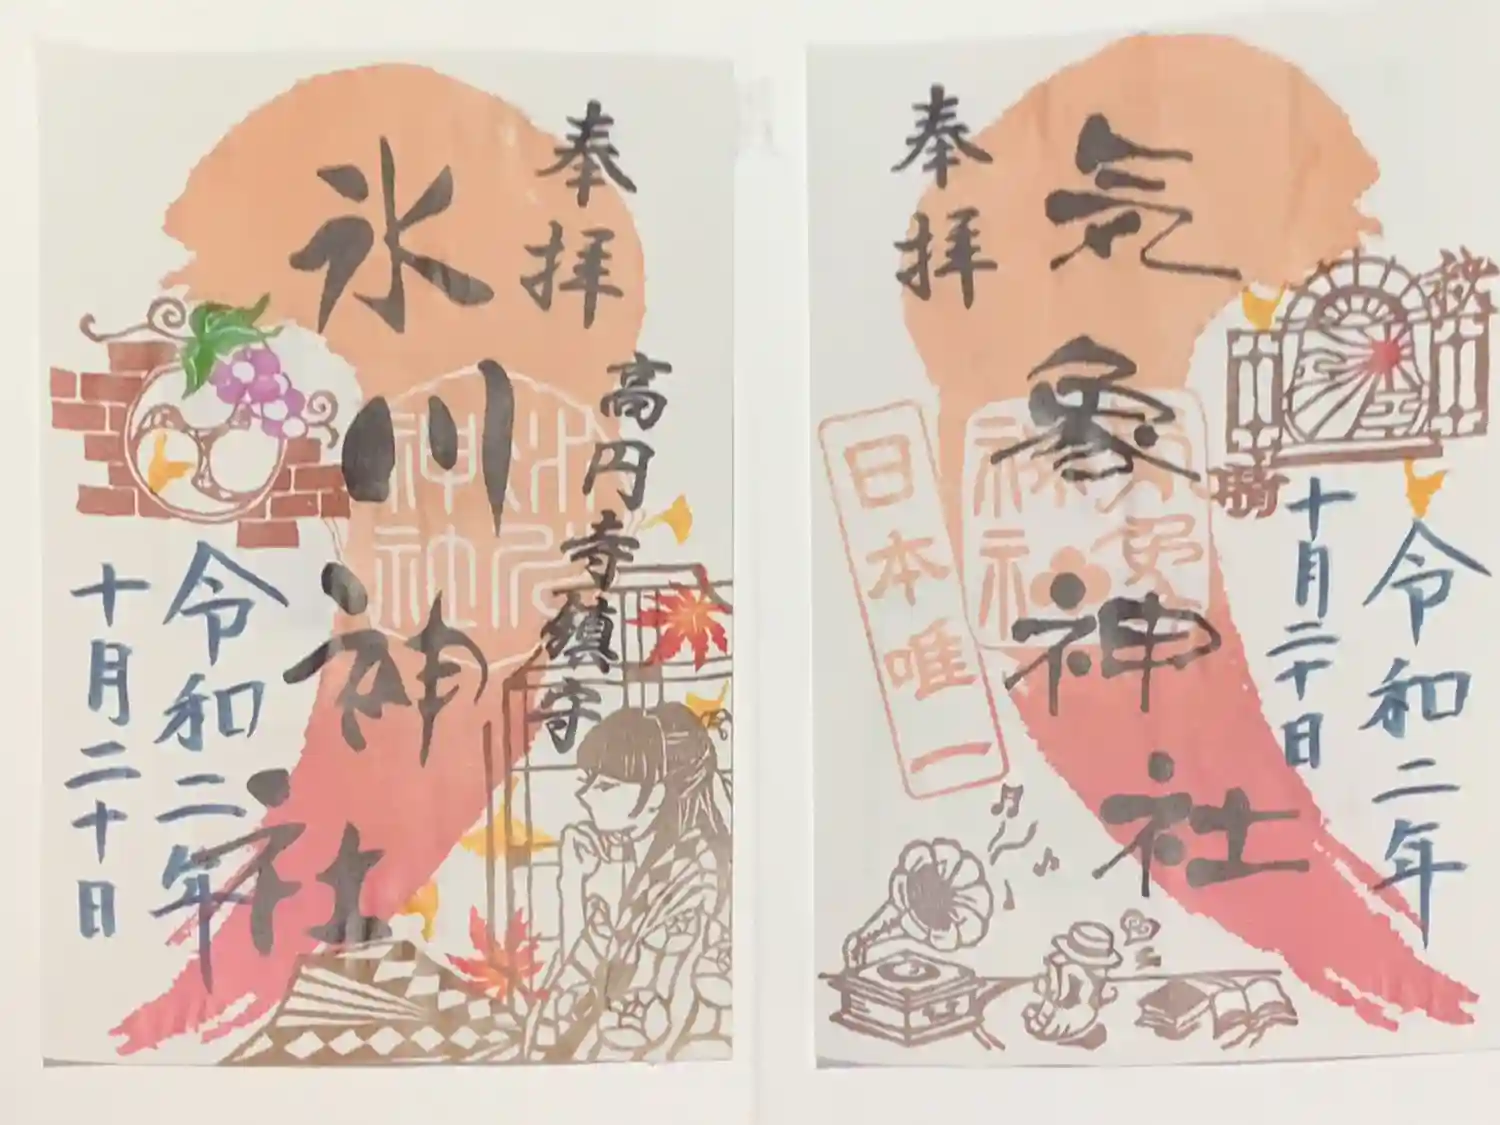 奉拝
高円寺鎮守
氷川神社
令和二年
十月二十日
令和二年
十月二十日
秋
晴
気象神社
奉拝
日本唯一
氷川
神社
気象
神社